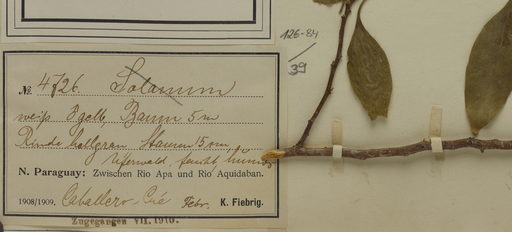 126-84
/
39
№ 4726. Solanum
weiß & gelb. Baum 5 m
Rinde hellgrau Stamm 15 cm
Uferwald, feucht, humos
N. Paraguay: Zwischen Rio Apa und Rio Aquidaban.
1908/1909. Caballero-Cué Febr. K. Fiebrig.
Zugegangen VII. 1910.